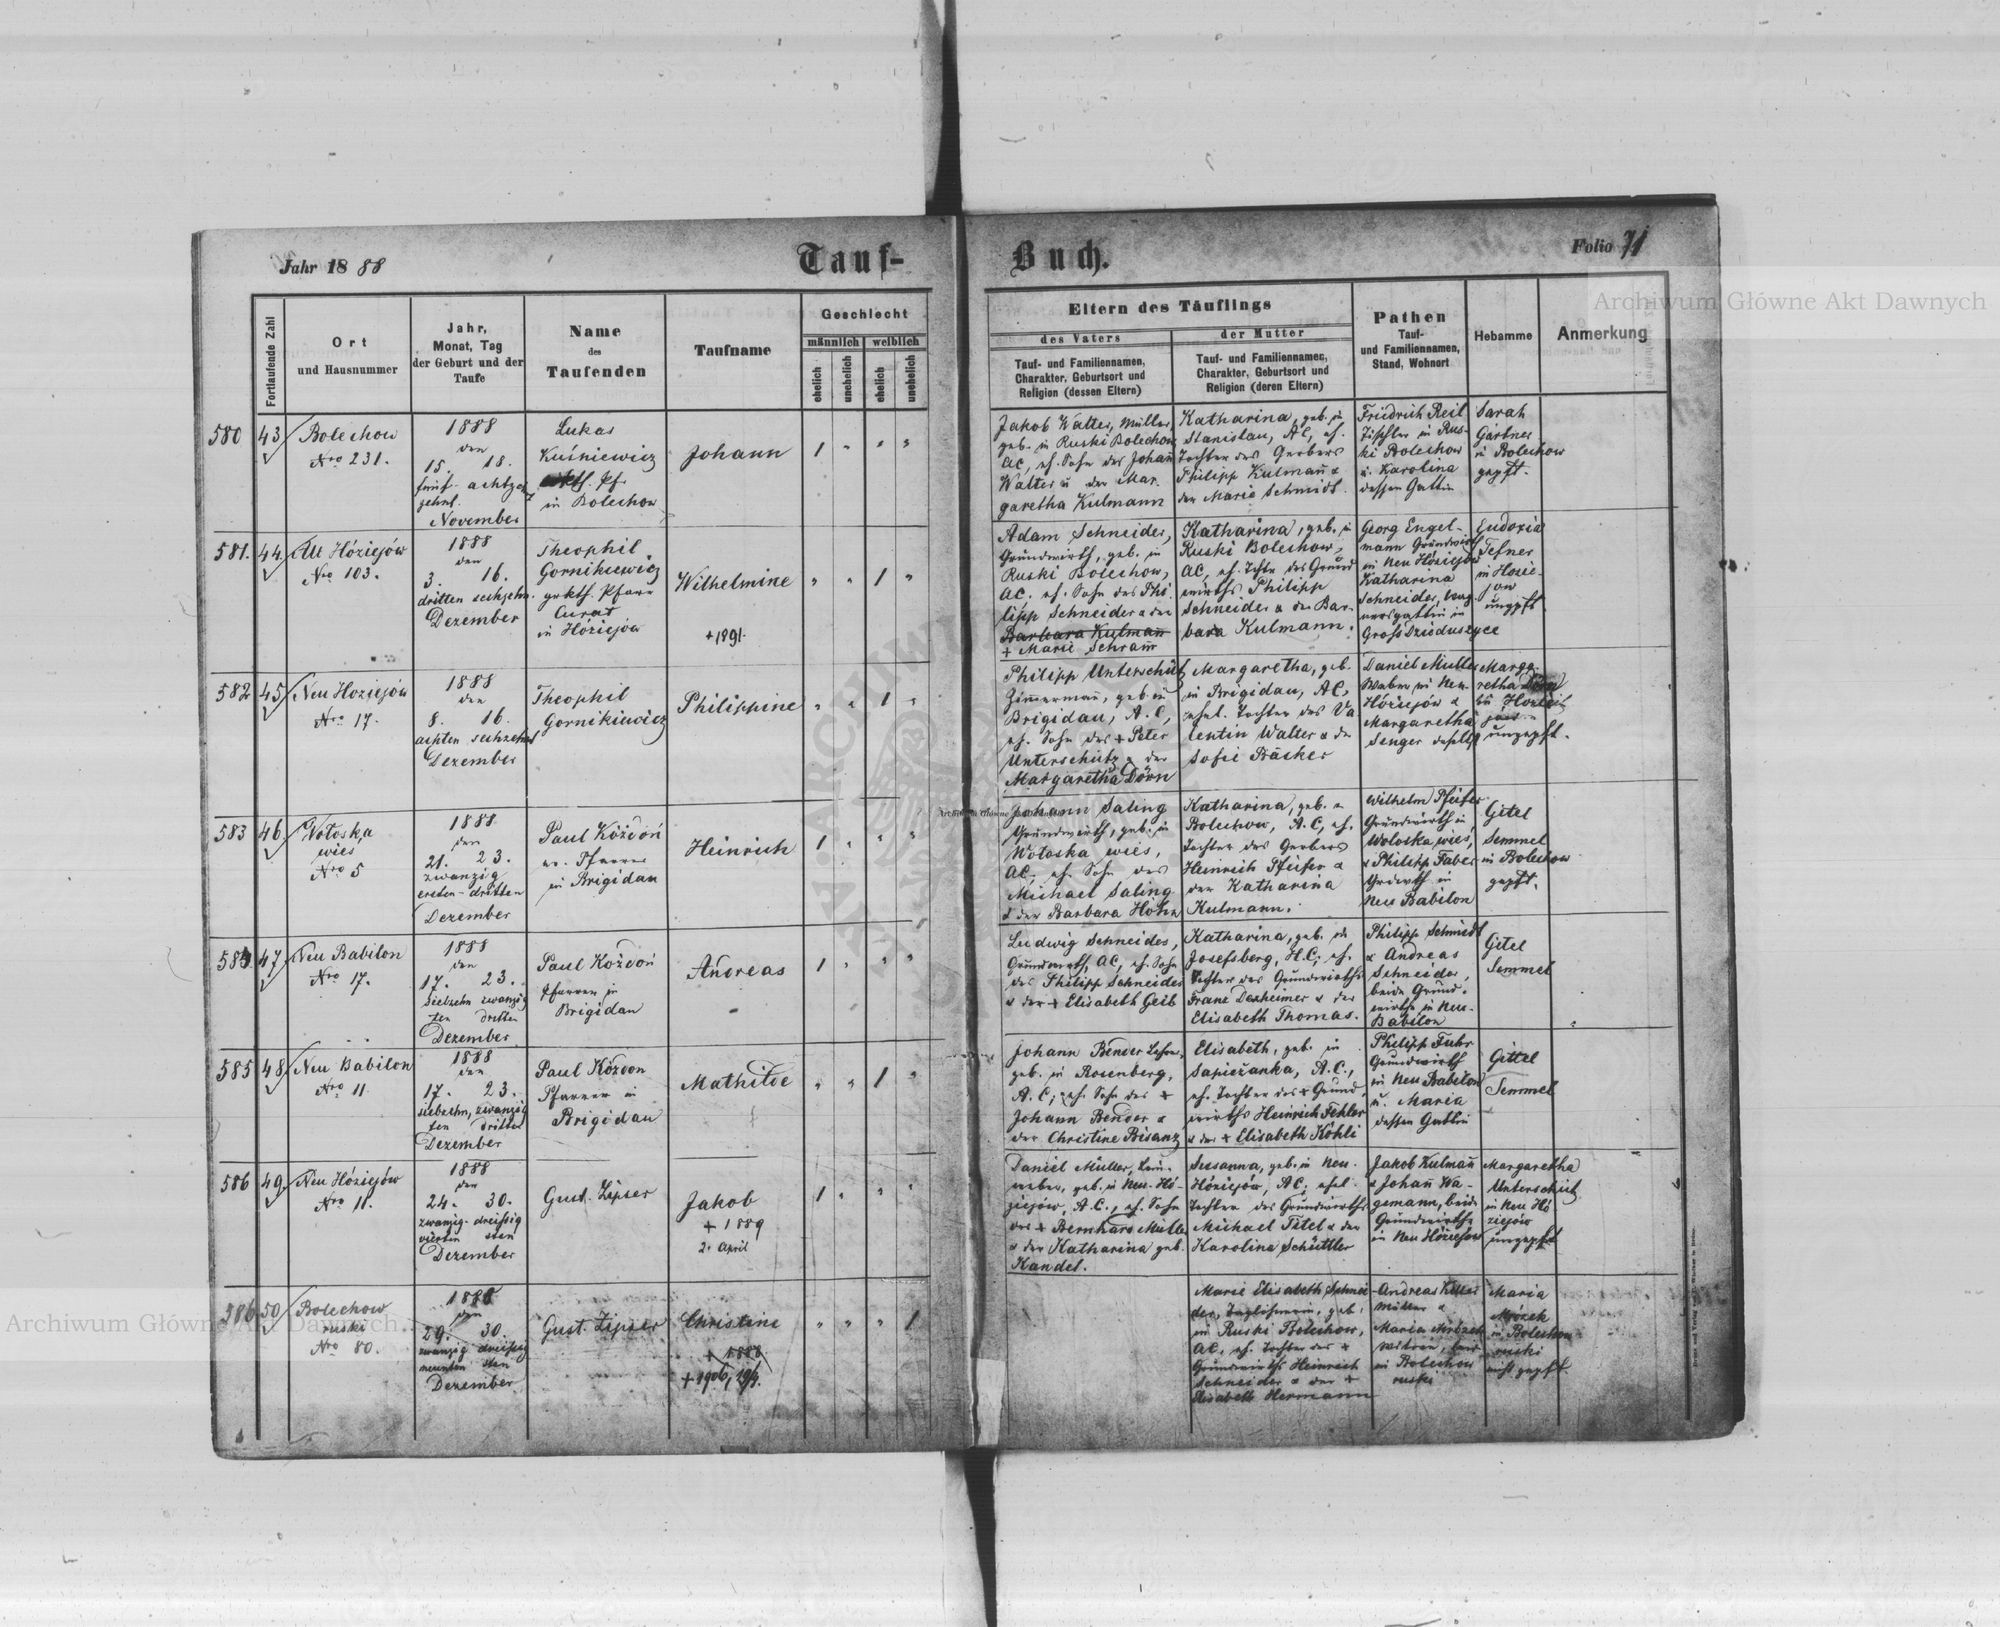 Jahr 1888
Tauf-
Buch.
Folio 71
Archiwum Główne Akt Dawnych
Fortlaufende Zahl
Ort
und Hausnummer
Jahr,
Monat, Tag
der Geburt und der
Taufe
Name
des
Taufenden
Taufname
Geschlecht
männlich
weiblich
ehelich
unehelich
ehelich
unehelich
Eltern des Täuflings
des Vaters
Tauf- und Familiennamen,
Charakter, Geburtsort und
Religion (dessen Eltern)
der Mutter
Tauf- und Familiennamen,
Charakter, Geburtsort und
Religion (deren Eltern)
Pathen
Tauf-
und Familiennamen,
Stand, Wohnort
Hebamme
Anmerkung
580
43
Bolechow
Nro 231.
1888
den
15. 18.
fünf- achtzehn
zehnt.
November
Lukas
Kuśniewicz
Pf.
in Bolechow
Johann
1 " " "
Jakob Walter, Müller,
geb. in Ruski Bolechow,
AC, eh. Sohn des Johann
Walter u der Mar-
garetha Kulmann
Katharina, geb. in
Stanislau, AC, eh.
Tochter des Gerbers
Philipp Kulmann &
der Marie Schmidt.
Friedrich Reil
Tischler in Rus-
ki Bolechow
u. Karolina
dessen Gattin
Sarah
Gärtner
in Bolechow
gepft.
581.
44.
Alt Hóziejów
Nro 103.
1888
den
3. 16.
dritten sechzehn.
Dezember
Theophil
Gornikiewicz
grkth. Pfarr
Curat
in Hóziejów
Wilhelmine
+ 1891.
" " 1 "
Adam Schneider,
Grundwirth, geb. in
Ruski Bolechow,
AC. eh. Sohn des Phi-
lipp Schneider & der
Barbara Kulmann
+ Marie Schramm
Katharina, geb. in
Ruski Bolechow,
AC, eh. Tchtr des Grund
wirths Philipp
Schneider & der Bar-
bara Kulmann.
Georg Engel-
mann Grundwirth
in Neu Hóziejów
Katharina
Schneider,
in
Gross Dziduszyce
Eudoxia
Tefner
in Hozie-
jow
ungpft.
582
45
Neu Hoziejów
Nro 17.
1888
den
8. 16.
achten sechzehnt
Dezember
Theophil
Gornikiewicz
Philippine
" " 1 "
Philipp Unterschütz
Zimmermann, geb in
Brigidau, A.C,
eh. Sohn des + Peter
Unterschütz & der
Margaretha Dörn
Margaretha, geb.
in Brigidau, AC,
ehel. Tochter des Va
lentin Walter & der
Sofie Bäsker
Daniel Müller
Weber in Neu-
Hóziejów &
Margaretha
Senger
Marga-
retha Dörn
in Hoziej
jow
ungepft.
583
46.
Wołoska
wieś
Nro 5
1888
den
21. 23.
zwanzig
ersten - dritten
Dezember
Paul Kożdoń
ev. Pfarrer
in Brigidau
Heinrich
1 " " "
Johann Saling
Grundwirth, geb. in
Wołoska wieś,
AC, eh. Sohn des
Michael Saling
& der Barbara Höhn
Katharina, geb. in
Bolechow, A.C, eh.
Tochter des Gerbers
Heinrich Pfeifer &
der Katharina
Kulmann.
Wilhelm Pfeifer
Grundwirth in
Wołoska wieś,
& Philipp Faber
Grdwth in
Neu Babilon
Gitel
Semmel
in Bolechow
gepft.
584.
47
Neu Babilon
Nro 17.
1888
den
17. 23.
siebzehn zwanzig
ten dritten
Dezember
Paul Kożdoń
Pfarrer in
Brigidau
Andreas
1 " " "
Ludwig Schneider,
Grundwirth, AC, eh. Sohn
des Philipp Schneider
& der + Elisabeth Geib
Katharina, geb. in
Josefsberg, H.C, eh.
Tochter des Grundwirths
Franz Dexheimer & der
Elisabeth Thomas.
Philipp Schmidt
& Andreas
Schneider,
beide Grund-
wirthe in Neu-
Babilon
Gitel
Semmel
585
48
Neu Babilon
Nro 11.
1888
den
17. 23.
siebzehn, zwanzig
ten dritten
Dezember
Paul Kożdon
Pfarrer in
Brigidau
Mathilde
" " 1 "
Johann Bender Lehrer,
geb. in Rosenberg,
A.C, eh. Sohn des +
Johann Bender &
der Christine Bisanz
Elisabeth, geb. in
Sapieżanka, A.C.,
eh. Tochter des + Grund
wirths Heinrich Fehler
& der + Elisabeth Köhli
Philipp Fuhr
Grundwirth
in Neu Babilon
u. Maria
dessen Gattin
Gittel
Semmel
586
49.
Neu Hóziejów
Nro 11.
1888
den
24. 30.
zwanzig- dreissig
vierten sten
Dezember
Gust. Zipser
Jakob
+ 1889
2. April
1 " " "
Daniel Müller, Lein-
weber, geb. in Neu-Hó-
ziejów, A.C., eh. Sohn
des + Bernhard Müller
& der Katharina geb.
Kandel.
Susanna, geb. in Neu-
Hóziejów, AC, ehel.
Tochter des Grundwirths
Michael Titel & der
Karolina Schüttler
Jakob Kulmann
& Johann Wa-
gemann, beide
Grundwirthe
in Neu Hóziejow
Margaretha
Unterschütz
in Neu Hó
ziejów
ungepft
586
50
Bolechow
ruski
Nro 80.
1888
den
29. 30.
zwanzig dreissig
neunten sten
Dezember
Gust. Zipser
Christine
+ 1888
+ 1906, 19/4.
" " " 1
Marie Elisabeth Schnei
der, Taglöhnerin, geb.
in Ruski Bolechow,
AC, eh. Tochter des +
Grundwirths Heinrich
Schneider & der +
Elisabeth Hermann
Andreas Keller
Müller &
Maria Mrózek
Witwe, beide
in Bolechow
ruski
Maria
Mrózek
in Bolechow
ruski
nicht gepft.
Archiwum Główne Akt Dawnych